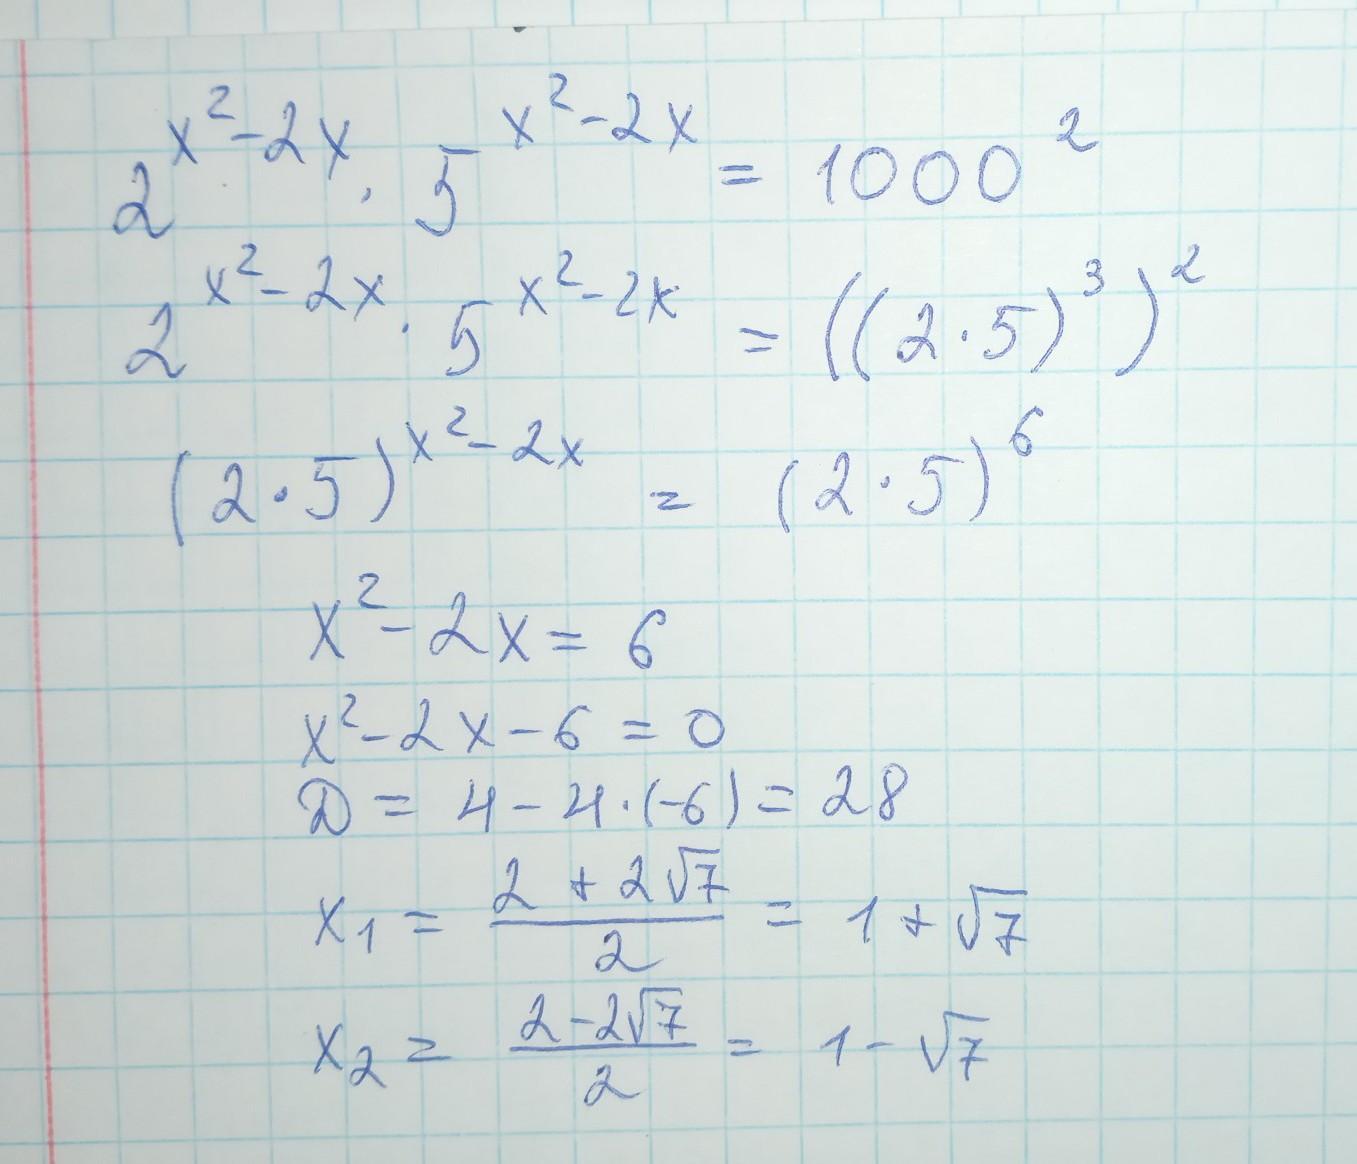 2^(x²-2x) · 5^(x²-2x) = 1000²
2^(x²-2x) · 5^(x²-2x) = ((2·5)³)²
(2·5)^(x²-2x) = (2·5)⁶
x²-2x = 6
x²-2x-6 = 0
D = 4-4·(-6) = 28
x₁ = (2+2√7)/2 = 1+√7
x₂ = (2-2√7)/2 = 1-√7